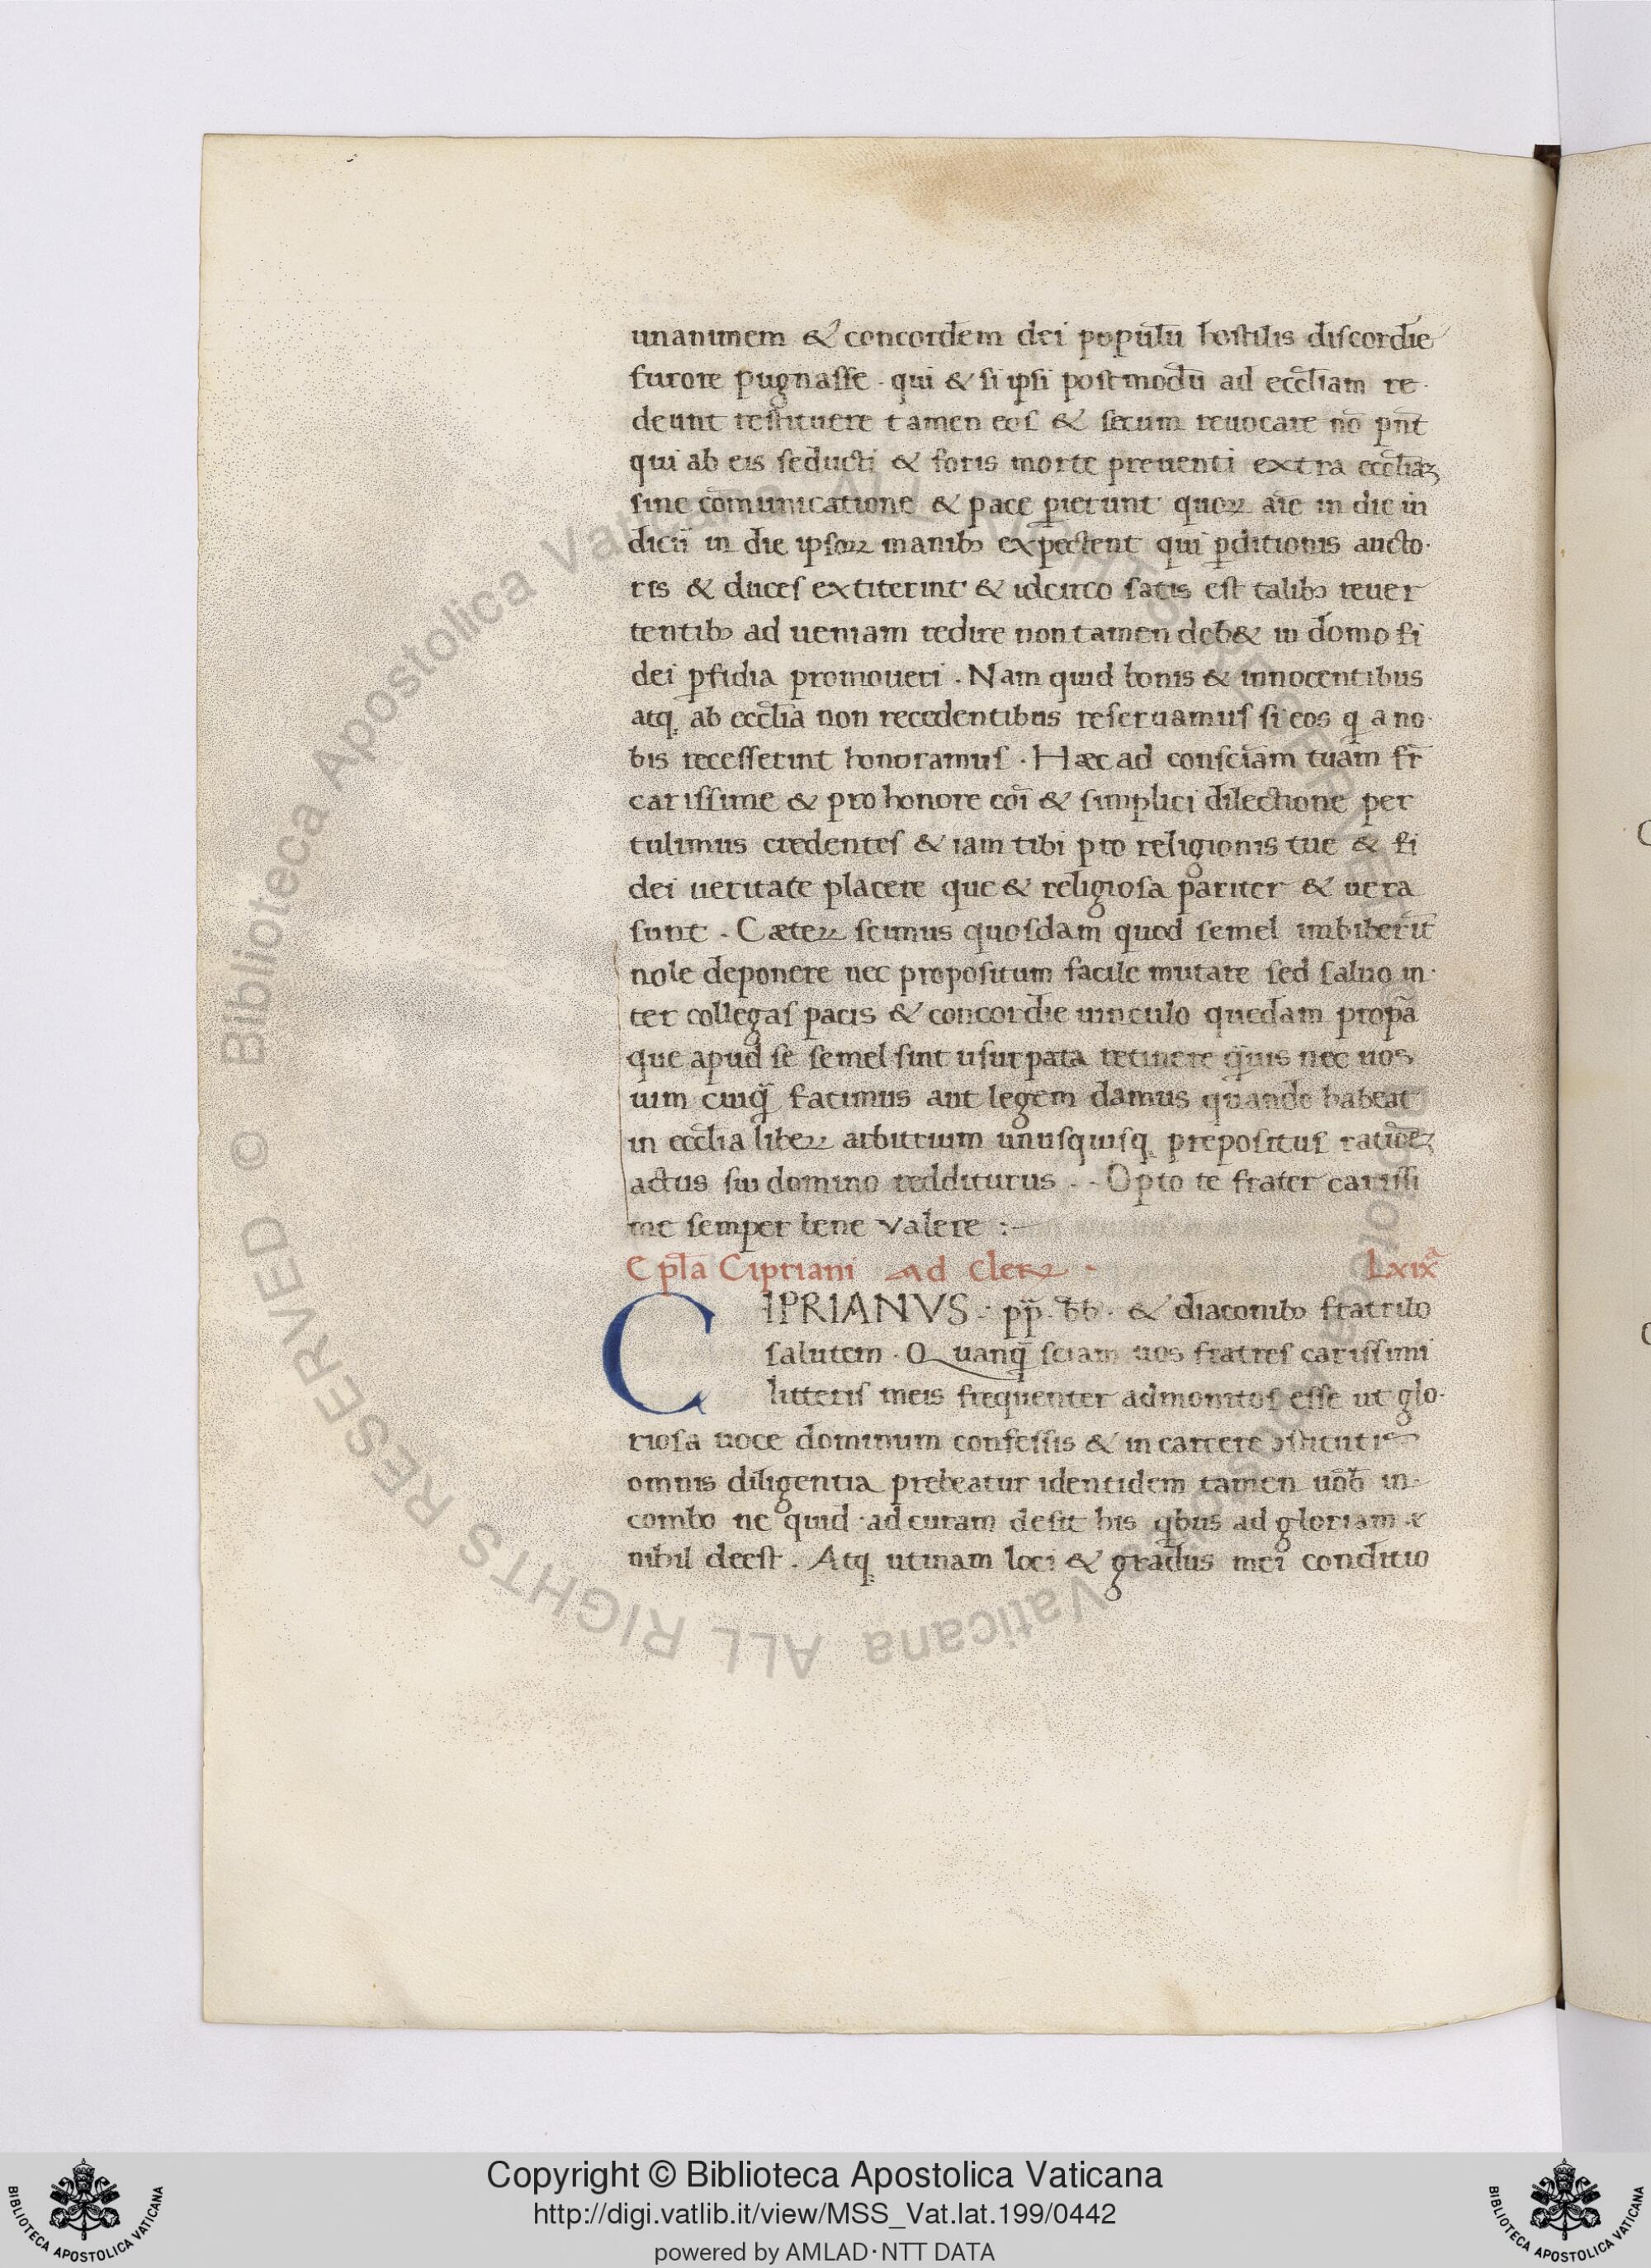 unanimem & concordem dei populū hostilis discordie
furore pugnasse . qui & si ipsi postmodū ad eccl̄iam re-
deunt restituere tamen eos & secum reuocare nō pn̄t
qui ab eis seducti & foris morte preuenti extra eccl̄iaꝫ
sine cōmunicatione & pace ꝑierunt quoꝝ aīe in die iu
dicii in die ipsoꝝ manibꝫ expectent qui ꝑditionis aucto-
res & duces extiterint & idcirco satis est talibꝫ reuer
tentibꝫ ad ueniam redire non tamen deb& in domo fi
dei ꝑfidia promoueri . Nam quid bonis & innocentibus
atqꝫ ab eccl̄ia non recedentibus reseruamus si eos q̄ a no-
bis recesserint honoramus . Hæc ad consciam tuam fr̄
carissime & pro honore cōi & simplici dilectione per
tulimus credentes & iam tibi pro religionis tue & fi
dei ueritate placere que & religiosa pariter & uera
sunt . Cæteꝝ scimus quosdam quod semel imbiberīt
nole deponere nec propositum facile mutare sed saluo in-
ter collegas pacis & concordie uinculo quedam prop̄a
que apud se semel sint usurpata retinere q̄uis nec nos
uim cuiq̄ facimus aut legem damus quando habeat
in eccl̄ia libeꝝ arbitrium unusquisqꝫ prepositus ratiōeꝫ
actus sui domino redditurus . - Opto te frater carissi
me semper bene valere :-
Epl̄a Cipriani ad Cleꝝ . Lxixᵃ
CIPRIANVS . pp̄. b̄b . & diaconibꝫ fratribꝫ
salutem . Quanq̄ sciam uos fratres carissimi
litteris meis frequenter admonitos esse ut glo-
riosa uoce dominum confessis & in carcere ↄstitutis
omnis diligentia prebeatur identidem tamen uōb in-
combo ne quid ad curam desit his q̄bus ad gloriam
nihil deest . Atqꝫ utinam loci & gradus mei conditio
Copyright © Biblioteca Apostolica Vaticana
http://digi.vatlib.it/view/MSS_Vat.lat.199/0442
powered by AMLAD·NTT DATA
BIBLIOTECA APOSTOLICA VATICANA
BIBLIOTECA APOSTOLICA VATICANA
© Biblioteca Apostolica Vaticana ALL RIGHTS RESERVED
© Biblioteca Apostolica Vaticana ALL RIGHTS RESERVED